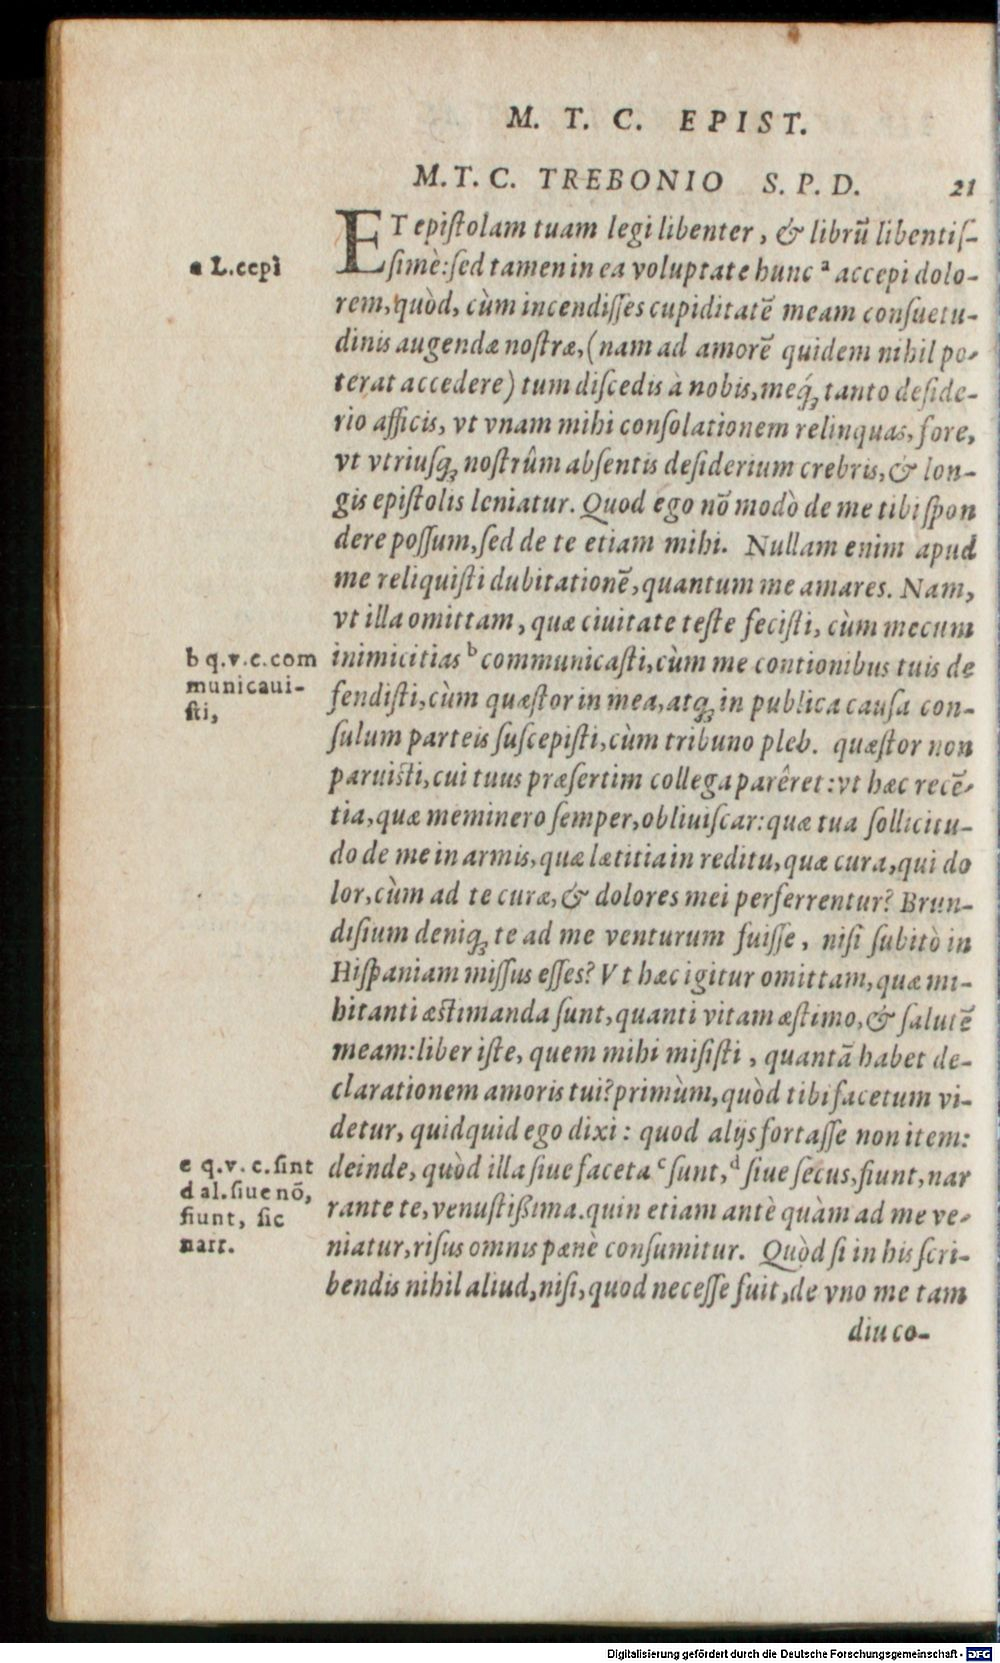 M. T. C. EPIST.
M.T. C. TREBONIO S. P. D. 21
ET epiſtolam tuam legi libenter, & librū libentiſ-
a L.cepi
ſimè:ſed tamen in ea voluptate hunc a accepi dolo-
rem,quòd, cùm incendiſſes cupiditatē meam conſuetu-
dinis augendæ noſtræ,(nam ad amorē quidem nihil po-
terat accedere) tum diſcedis à nobis,meq́ꝫ tanto deſide-
rio afficis, vt vnam mihi conſolationem relinquas, fore,
vt vtriuſqꝫ noſtrûm abſentis deſiderium crebris,& lon-
gis epiſtolis leniatur. Quod ego nō modò de me tibi ſpon
dere poſſum,ſed de te etiam mihi. Nullam enim apud
me reliquiſti dubitationē,quantum me amares. Nam,
vt illa omittam, quæ ciuitate teſte feciſti, cùm mecum
b q.v.c.com
municaui-
ſti,
inimicitias b communicaſti,cùm me contionibus tuis de
fendiſti,cùm quæſtor in mea,atqꝫ in publica cauſa con-
ſulum parteis ſuſcepiſti,cùm tribuno pleb. quæſtor non
paruiſti,cui tuus præſertim collega parêret:vt hæc recē-
tia,quæ meminero ſemper,obliuiſcar:quæ tua ſollicitu-
do de me in armis,quæ lætitia in reditu,quæ cura,qui do
lor,cùm ad te curæ,& dolores mei perferrentur? Brun-
diſium deniqꝫ te ad me venturum fuiſſe, niſi ſubitò in
Hiſpaniam miſſus eſſes? Vt hæc igitur omittam,quæ mi-
hi tanti æſtimanda ſunt,quanti vitam æſtimo,& ſalutē
meam:liber iſte, quem mihi miſiſti, quantā habet de-
clarationem amoris tui?primùm,quòd tibi facetum vi-
detur, quidquid ego dixi: quod alijs fortaſſe non item:
c q.v.c.ſint
d al.ſiue nō,
fiunt, ſic
narr.
deinde, quòd illa ſiue faceta c ſunt,d ſiue ſecus,fiunt,nar
rante te,venuſtißima.quin etiam antè quàm ad me ve-
niatur,riſus omnis pænè conſumitur. Quòd ſi in his ſcri-
bendis nihil aliud,niſi,quod neceſſe fuit,de vno me tam
diu co-
Digitalisierung gefördert durch die Deutsche Forschungsgemeinschaft - DFG